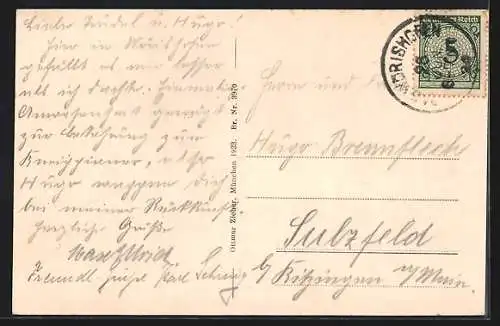 Liebe Trudel u. Hugo!
Hier in Wörishofen
gefällt es mir besser
als ich dachte. Einmalige
Anwesenheit genügt
zur Bekehrung zum
Kneippianer, also
Hugo wappne Dich
bei meiner Rückkunft.
Herzliche Grüße
Freundl. Grüße Karl
Ottmar Zieher, München 1923. Br. Nr. 3970
WÖRISHOFEN
Reich
5
Herrn und Frau
Hugo Brennfleck
Sulzfeld
b/ Kitzingen a/Main.